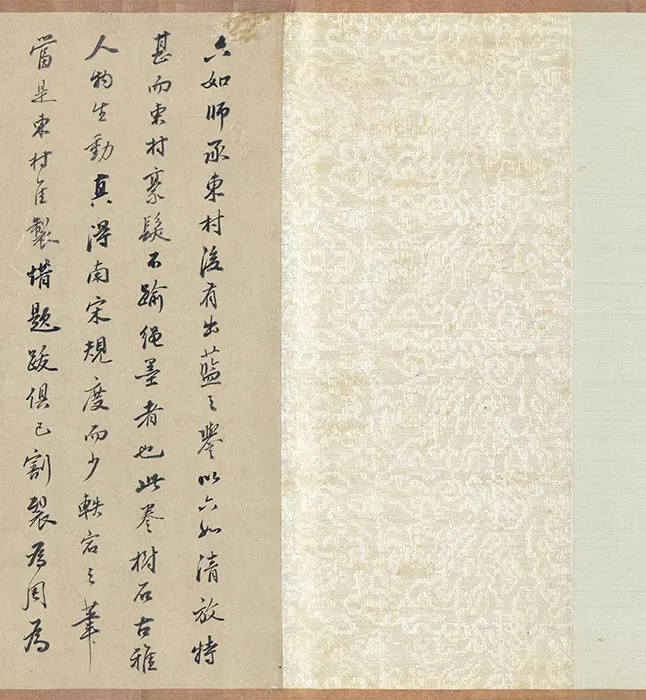 六如師承東村後有出藍之譽以六如清放特
甚而東村豪髮不踰繩墨者也此卷樹石古雅
人物生動真得南宋規度而少軼宕之筆
當是東村佳製惜題跋俱已割裂為周為